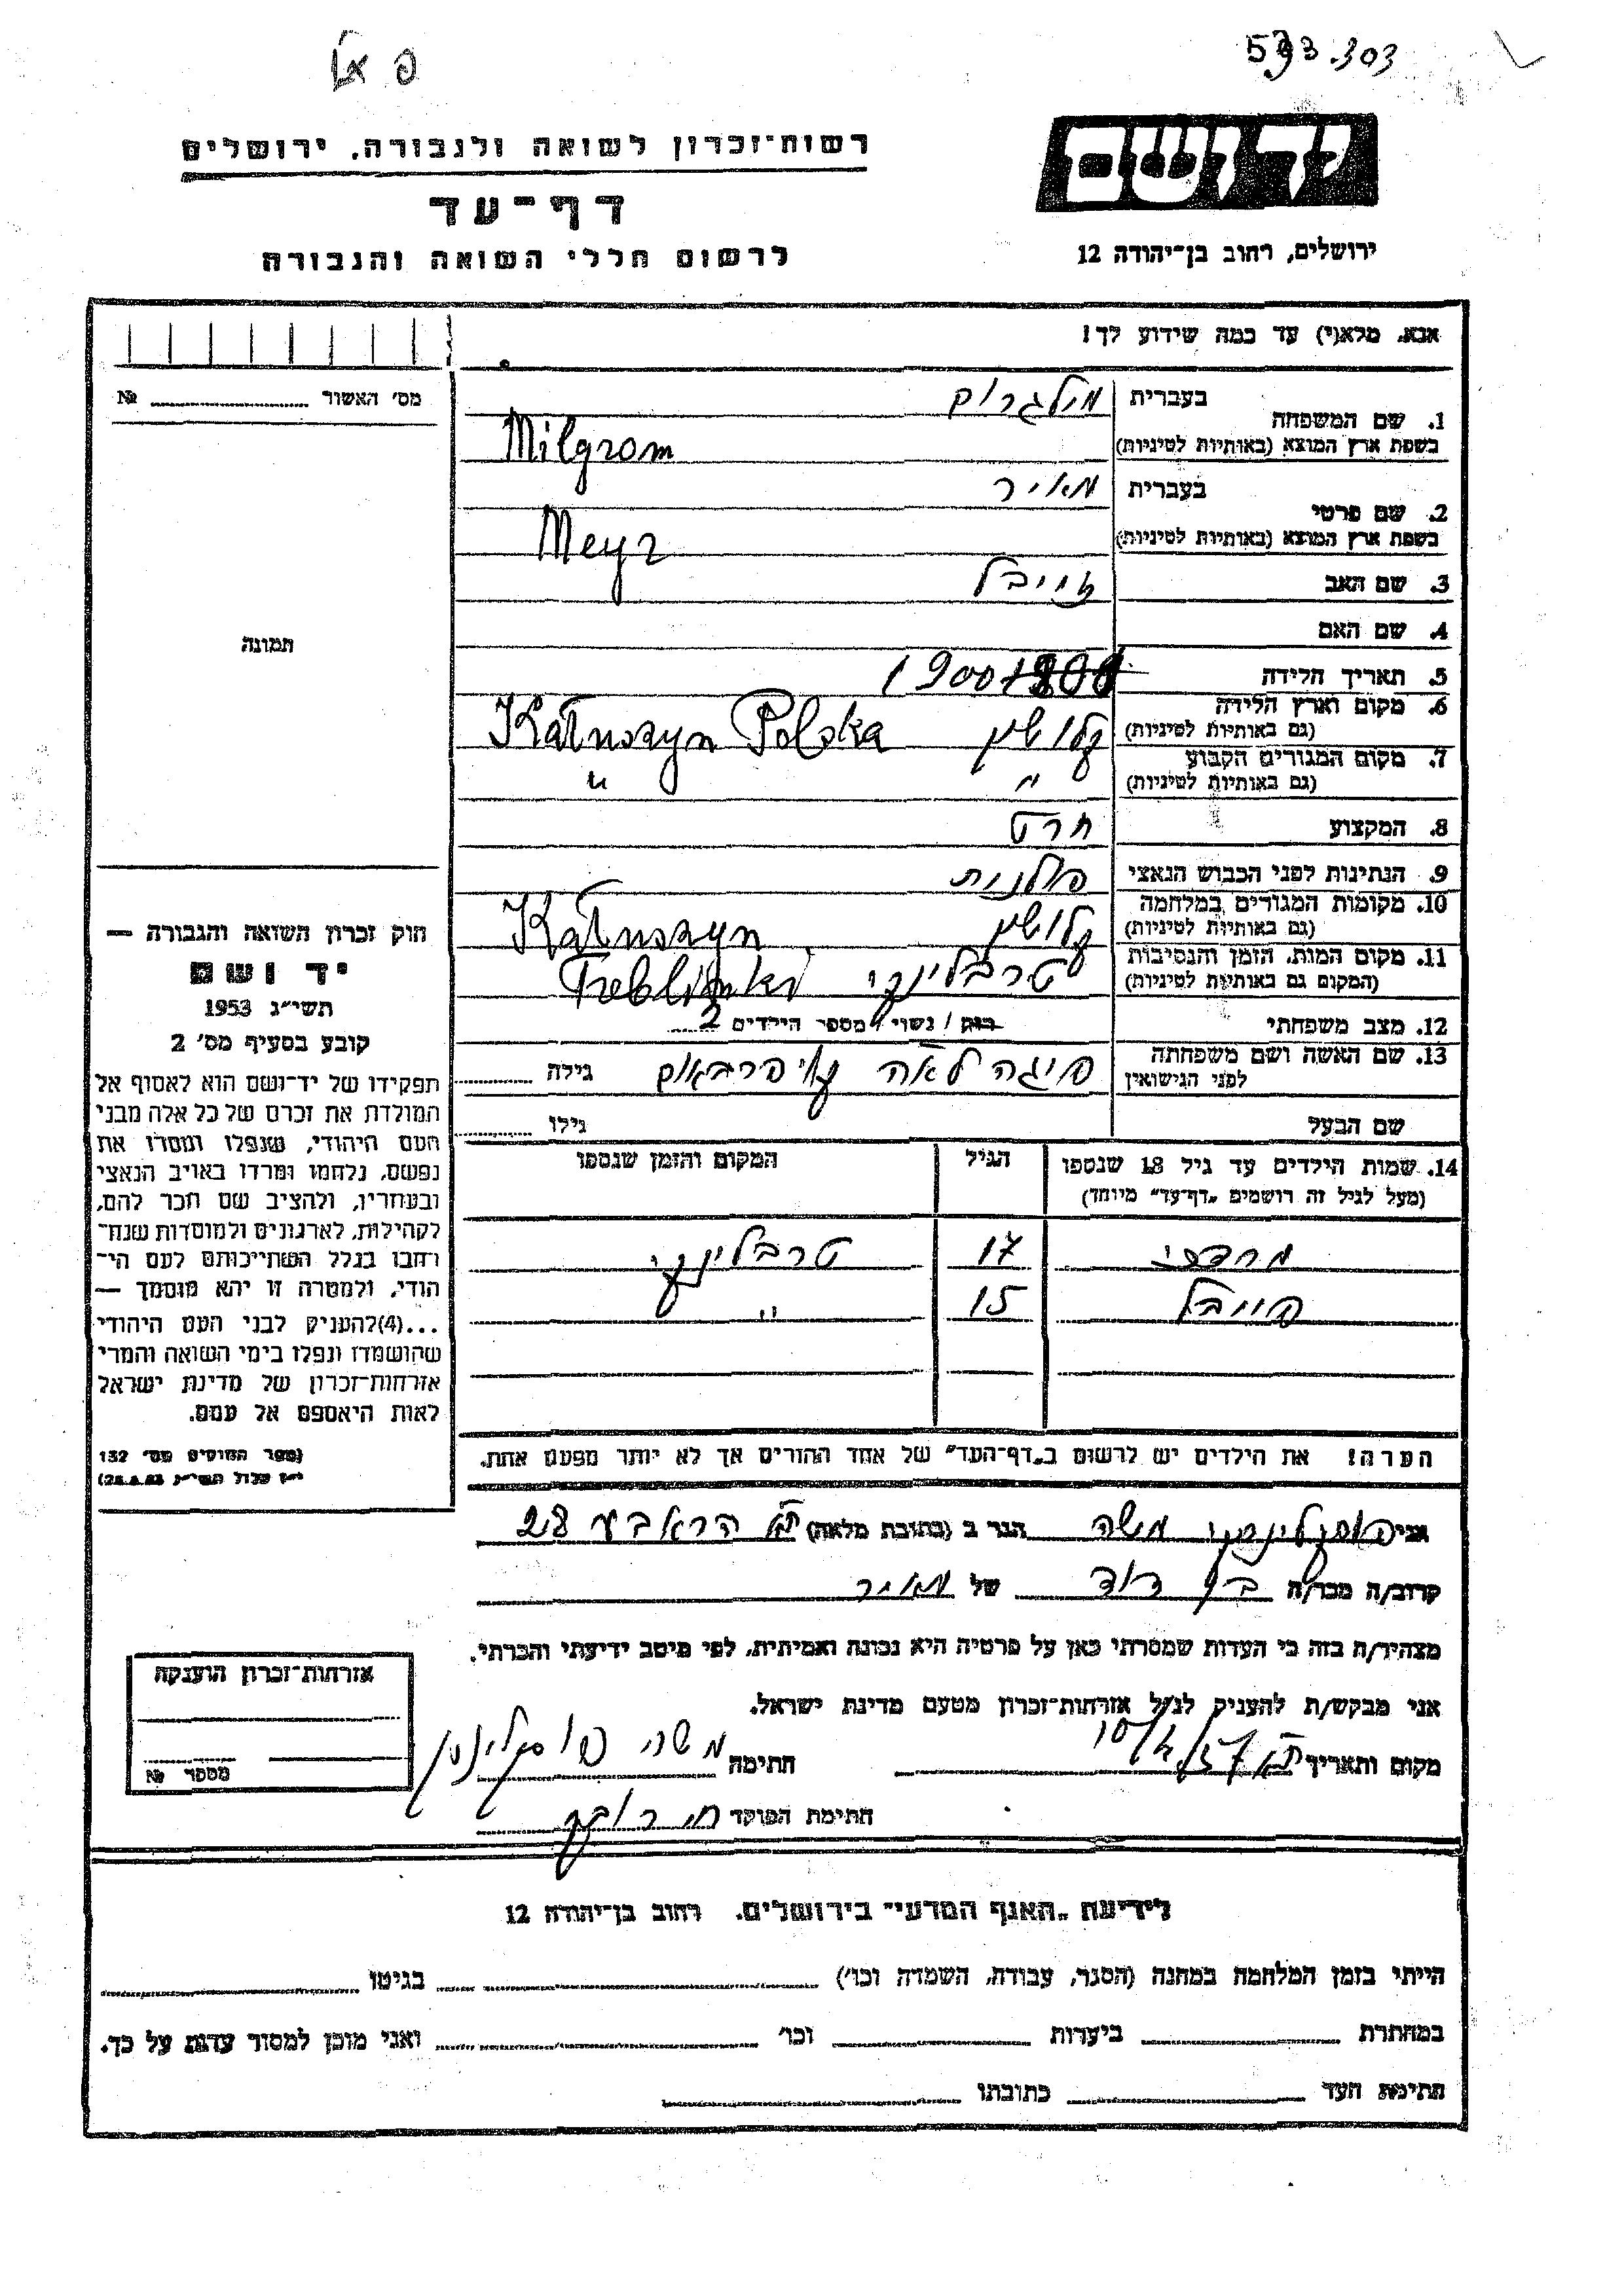 593.303
פ
יד ושם
ירושלים, רחוב בן־יהודה 12
רשות־זכרון לשואה ולגבורה, ירושלים
דף־עד
לרשום חללי השואה והגבורה
אנא, מלא(י) עד כמה שידוע לך!
מס' האשור № 
תמונה
1. שם המשפחה בעברית מילגרום
בשפת ארץ המוצא (באותיות לטיניות) Milgrom
2. שם פרטי בעברית מאיר
בשפת ארץ המוצא (באותיות לטיניות) Meyr
3. שם האב
4. שם האם
5. תאריך הלידה 1900
6. מקום וארץ הלידה (גם באותיות לטיניות) קלושין Kałuszyn Polska
7. מקום המגורים הקבוע (גם באותיות לטיניות) " "
8. המקצוע חרט
9. הנתינות לפני הכבוש הנאצי פולנית
10. מקומות המגורים במלחמה (גם באותיות לטיניות) קלושין Kałuszyn
11. מקום המות, הזמן והנסיבות (המקום גם באותיות לטיניות) טרבלינקי Treblinki
12. מצב משפחתי רווק / נשוי / מספר הילדים 2
13. שם האשה ושם משפחתה לפני הנישואין פיגה לאה גילה
שם הבעל גילו
14. שמות הילדים עד גיל 18 שנספו הגיל המקום והזמן שנספו
(מעל לגיל זה רושמים „דף־עד” מיוחד)
מרדכי 17 טרבלינקי
פייבל 15 "
הערה! את הילדים יש לרשום ב„דף־העד” של אחד ההורים אך לא יותר מפעם אחת.
חוק זכרון השואה והגבורה —
יד ושם
תשי"ג 1953
קובע בסעיף מס' 2
תפקידו של יד־ושם הוא לאסוף אל
המולדת את זכרם של כל אלה מבני
העם היהודי, שנפלו ומסרו את
נפשם, נלחמו ומרדו באויב הנאצי
ובעוזריו, ולהציב שם וזכר להם,
לקהילות, לארגונים ולמוסדות שנח־
רבו בגלל השתייכותם לעם הי־
הודי, ולמטרה זו יהא מוסמך —
...(4)להעניק לבני העם היהודי
שהושמדו ונפלו בימי השואה והמרי
אזרחות־זכרון של מדינת ישראל
לאות היאספם אל עמם.
(ספר החוקים מס' 132
אני משה הגר ב (כתובת מלאה) 28
קרוב/ה מכר/ה בן דוד של מאיר
מצהיר/ה בזה כי העדות שמסרתי כאן על פרטיה היא נכונה ואמיתית, לפי מיטב ידיעתי והכרתי.
אני מבקש/ת להעניק לנ"ל אזרחות־זכרון מטעם מדינת ישראל.
מקום ותאריך חתימה משה
חתימת הפוקד
אזרחות־זכרון הוענקה
מספר №
לידיעת „האגף המדעי” בירושלים, רחוב בן־יהודה 12
הייתי בזמן המלחמה במחנה (הסגר, עבודה, השמדה וכו') בגיטו
במחתרת ביערות וכו' ואני מוכן למסור עדות על כך.
חתימת העד כתובתו